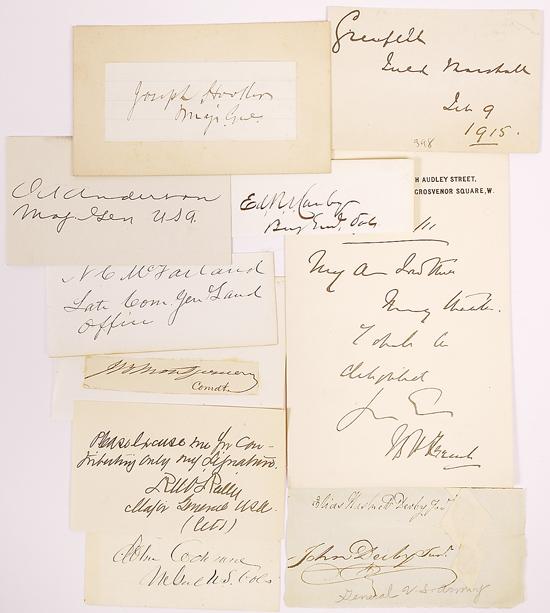 Joseph Hooker
Maj. Gen.
Grenfell
Field Marshall
Feb 9
1915.
398
Anderson
Maj Gen USA
Ed R S Canby
Brig Genl Vols
H AUDLEY STREET,
GROSVENOR SQUARE, W.
N C McFarland
Late Com. Gen Land
Office
My
Many thanks.
I shall be
delighted
Montgomery
Comdt
Please excuse me for con-
tributing only my signature.
Major General USA
John Cochrane
Elias Hasket Derby Junr
John Derby Junr
General U.S. Army